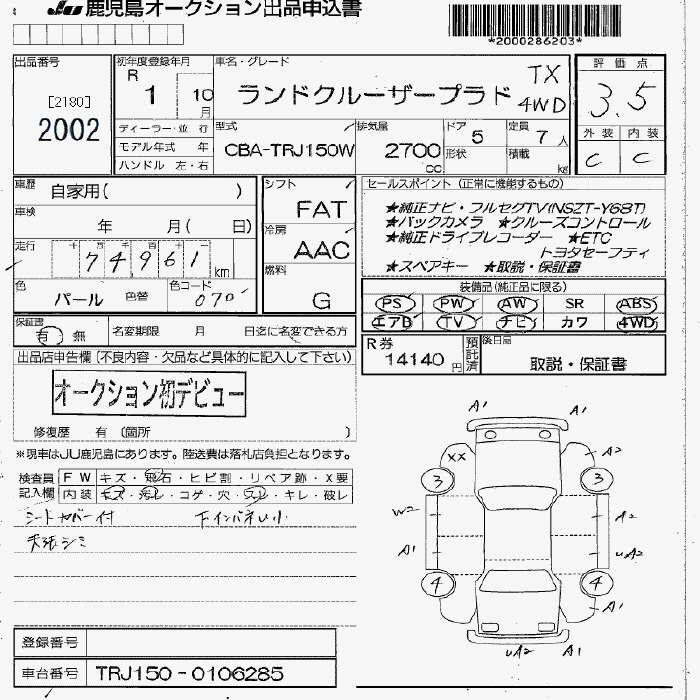 JU 鹿児島オークション出品申込書
*2000286203*
出品番号
[2180]
2002
初年度登録年月
R 1 10月
車名・グレード
ランドクルーザープラド TX 4WD
評価点
3.5
外装 内装
C C
ディーラー・並行
モデル年式 年
ハンドル 左・右
型式
CBA-TRJ150W
排気量
2700 cc
ドア 5
形状
定員 7人
積載 kg
車歴 自家用( )
車検 年 月( 日)
走行 十万千百十一
74961 km
色 パール 色替 色コード 070
シフト FAT
冷房 AAC
燃料 G
セールスポイント (正常に機能するもの)
★純正ナビ・フルセグTV(NSZT-Y68T)
★バックカメラ ★クルーズコントロール
★純正ドライブレコーダー ★ETC
トヨタセーフティ
★スペアキー ★取説・保証書
装備品(純正品に限る)
PS PW AW SR ABS
エアB TV ナビ カワ 4WD
保証書 有 無 名変期限 月 日迄に名変できる方
R券 14140円 預託済 後日品 取説・保証書
出品店申告欄(不良内容・欠品など具体的に記入して下さい)
オークション初デビュー
修復歴 有 (箇所 )
※現車はJU鹿児島にあります。陸送費は落札店負担となります。
検査員記入欄
FW キズ・飛石・ヒビ割・リペア跡・X要
内装 キズ・汚レ・コゲ・穴・スレ・キレ・破レ
シートカバー付
天張シミ
A1
A1
XX
A2
3
3
W2
A2
A1
UA2
4
4
A1
UA2
A1
登録番号
車台番号 TRJ150-0106285